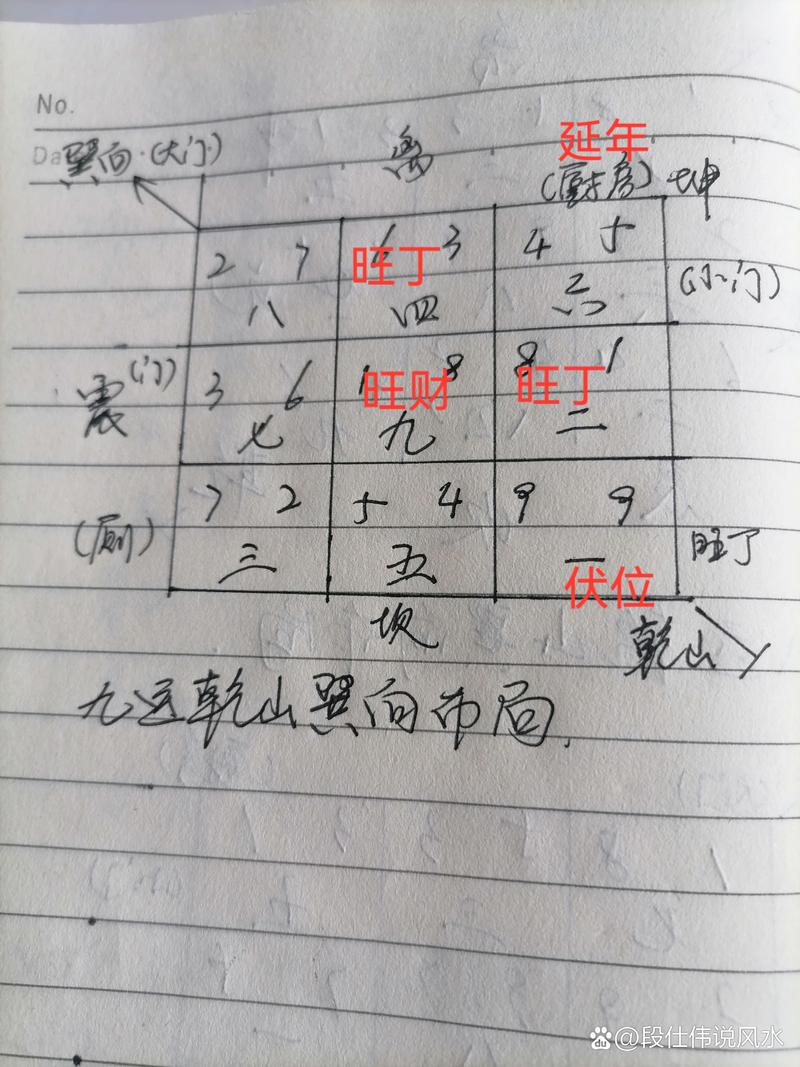 No.
Da
巽向·(大门)
离
延年
(厨房)
坤
2 7
3
4 5
旺丁
(小门)
八
四
六
震
(门)
3 6
8
8 1
旺财
旺丁
七
九
二
(厕)
7 2
5 4
9 9
旺丁
三
五
一
伏位
坎
乾山
九运乾山巽向布局.
@段仕伟说风水